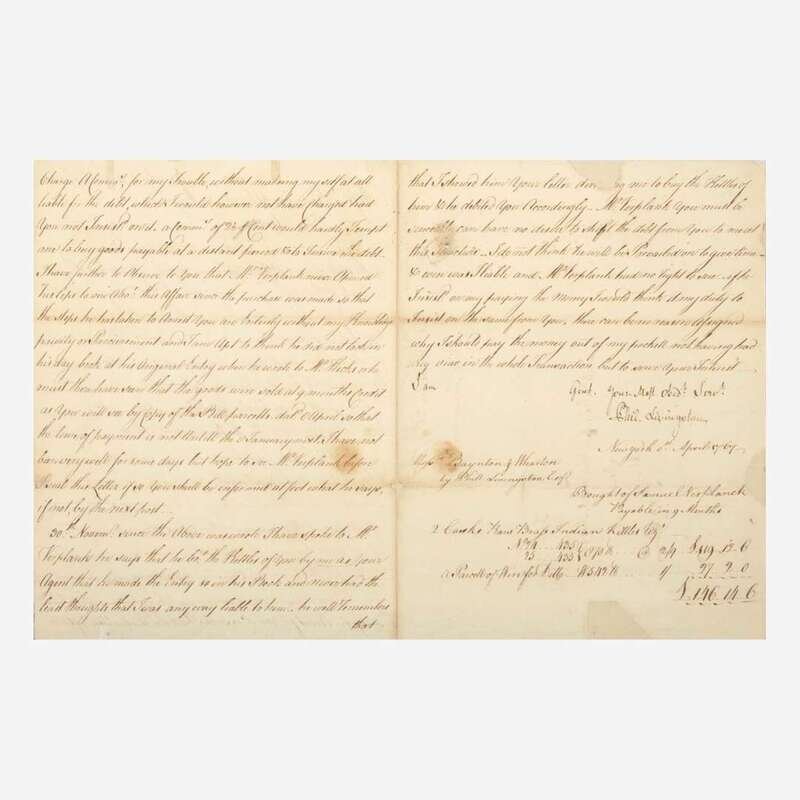 Charge a Comis.n for my Trouble, without making myself at all
liable for the debt, which I would however not have charged had
You not Insisted on it. a Comis.n of 2½ ⅌ Cent would hardly Tempt
me to buy goods payable at a distant period & to Insure the debt.
I have further to Observe to You that Mr. Verplank never Opened
his lips to me Abo.t this Affair since the purchase was made so that
the Steps he has taken to Arrest You are Entirely without my
privity or Procurement and I am Apt to think he did not look in
his day book at his Original Entry when he wrote to Mr.
must then have seen that the goods were sold at 9 months Credit
as You will see by Copy of the Bill parcells del.d 6 April so that
the time of payment is not Out till the 6 January next. I have not
been very well for some days but hope to see Mr. Verplank before
I seal this Letter if so You shall be informed at foot what he says,
if not, by the next post.
30th. Novem.r since the Above was wrote I have spoke to Mr.
Verplank he says that he the Kettles of You by me as Your
Agent that he made the Entry so in his Book and never had the
least thoughts that I was any way liable to him. he well remembers
that
that I shewed him Your letter me to buy the Kettles of
him & he debited You Accordingly. Mr. Verplank You must be
sensible can have no desire to shift the debt from You to me at
this Juncture. I do not think he will be Prevailed on to give time
& even was I liable and Mr. Verplank had no right to sue
Insist on my paying the Money I would think it my duty to
Insist on the same from You, there can be no reason assigned
why I should pay the money out of my pocket not having had
any view in the whole Transaction but to serve Your Interest
I am
Gent. Your Most Obed.t Serv.t
Phil. Livingston
New York 6th. April 1767
Mess.rs Baynton & Wharton
by Phill Livingston Esq.r
Bought of Samuel Verplanck
Payable in 9 Months
2 Casks Brass Indian Kettles
No. 24 435
25 435 @ 2/9 £119.12.6
a Parcell of 4/ 27.2.0
£146.14.6